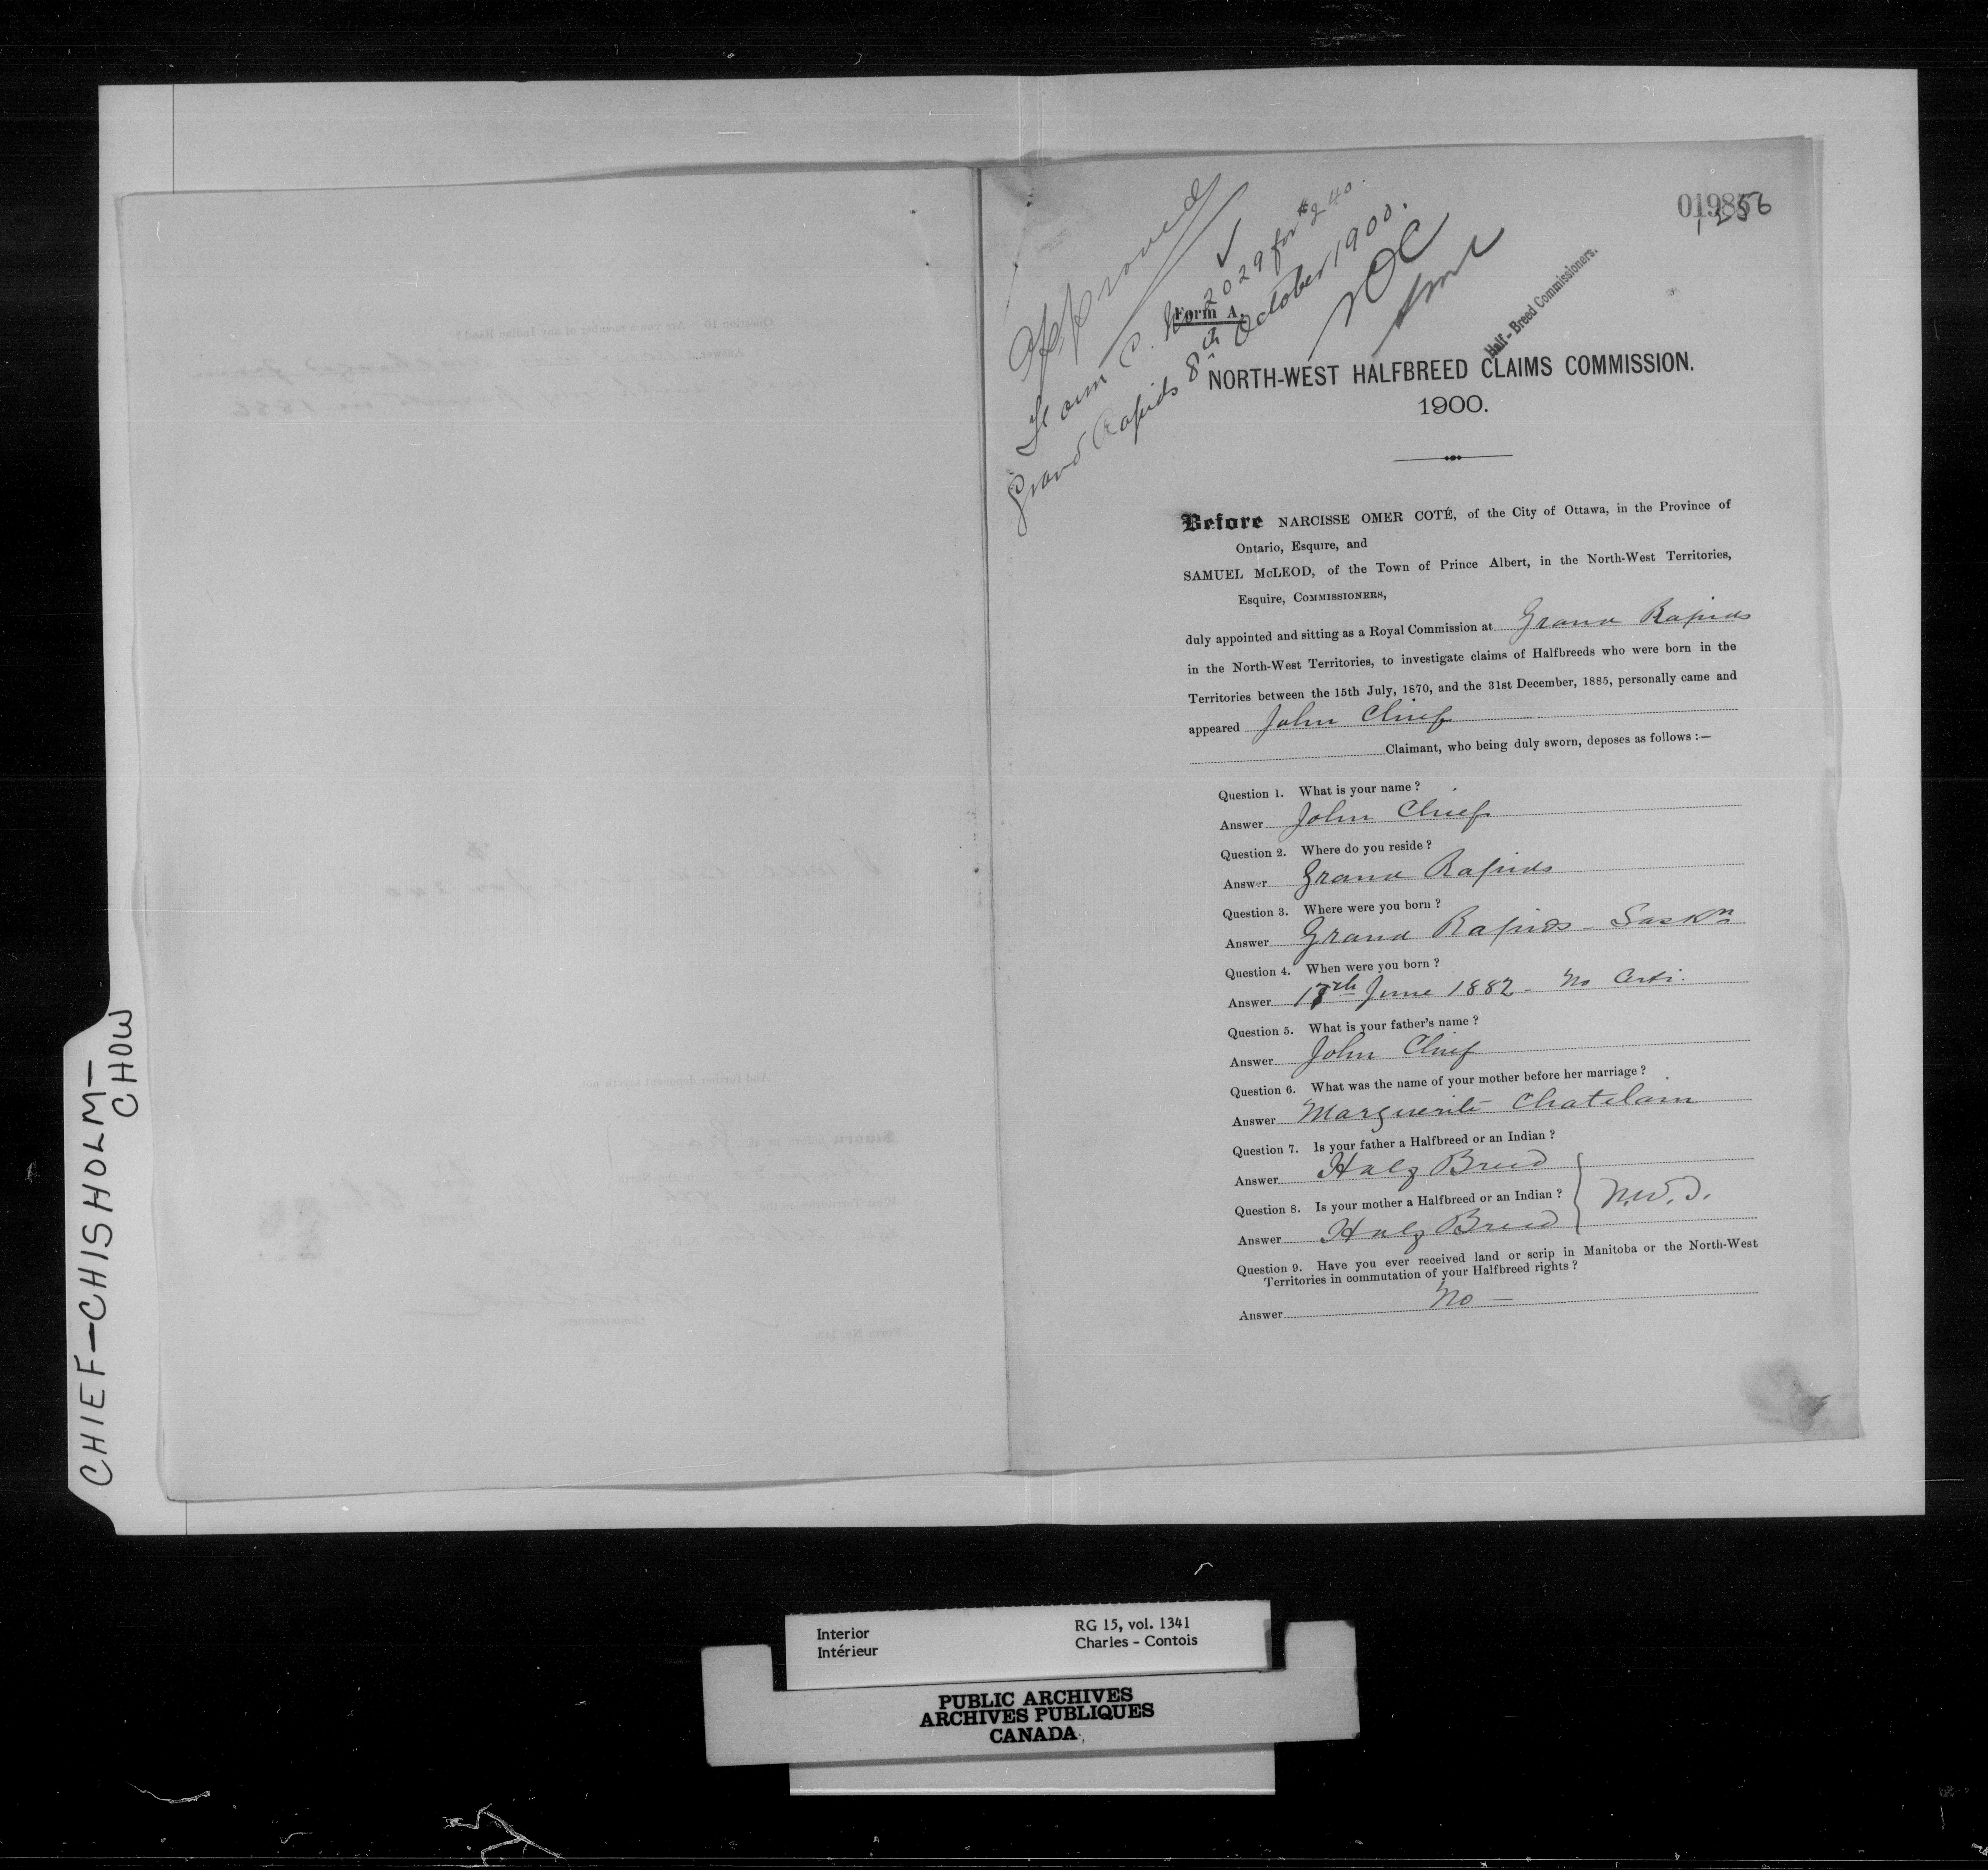 Approved
Form C. No 2029 for $240.
Grand Rapids 8th October 1900.
NOC
Half-Breed Commissioners.
Form A.
NORTH-WEST HALFBREED CLAIMS COMMISSION.
1900.
Before NARCISSE OMER COTÉ, of the City of Ottawa, in the Province of
Ontario, Esquire, and
SAMUEL McLEOD, of the Town of Prince Albert, in the North-West Territories,
Esquire, COMMISSIONERS,
duly appointed and sitting as a Royal Commission at Grand Rapids
in the North-West Territories, to investigate claims of Halfbreeds who were born in the
Territories between the 15th July, 1870, and the 31st December, 1885, personally came and
appeared John Chief
Claimant, who being duly sworn, deposes as follows :—
Question 1. What is your name ?
Answer John Chief
Question 2. Where do you reside ?
Answer Grand Rapids
Question 3. Where were you born ?
Answer Grand Rapids - Saskn
Question 4. When were you born ?
Answer 17th June 1882 - No Certi.
Question 5. What is your father's name ?
Answer John Chief
Question 6. What was the name of your mother before her marriage ?
Answer Marguerite Chatelain
Question 7. Is your father a Halfbreed or an Indian ?
Answer Half Breed
Question 8. Is your mother a Halfbreed or an Indian ?
N.W.T.
Answer Half Breed
Question 9. Have you ever received land or scrip in Manitoba or the North-West
Territories in commutation of your Halfbreed rights ?
Answer No —
CHIEF-CHISHOLM-
CHOW
Interior
Intérieur
RG 15, vol. 1341
Charles - Contois
PUBLIC ARCHIVES
ARCHIVES PUBLIQUES
CANADA